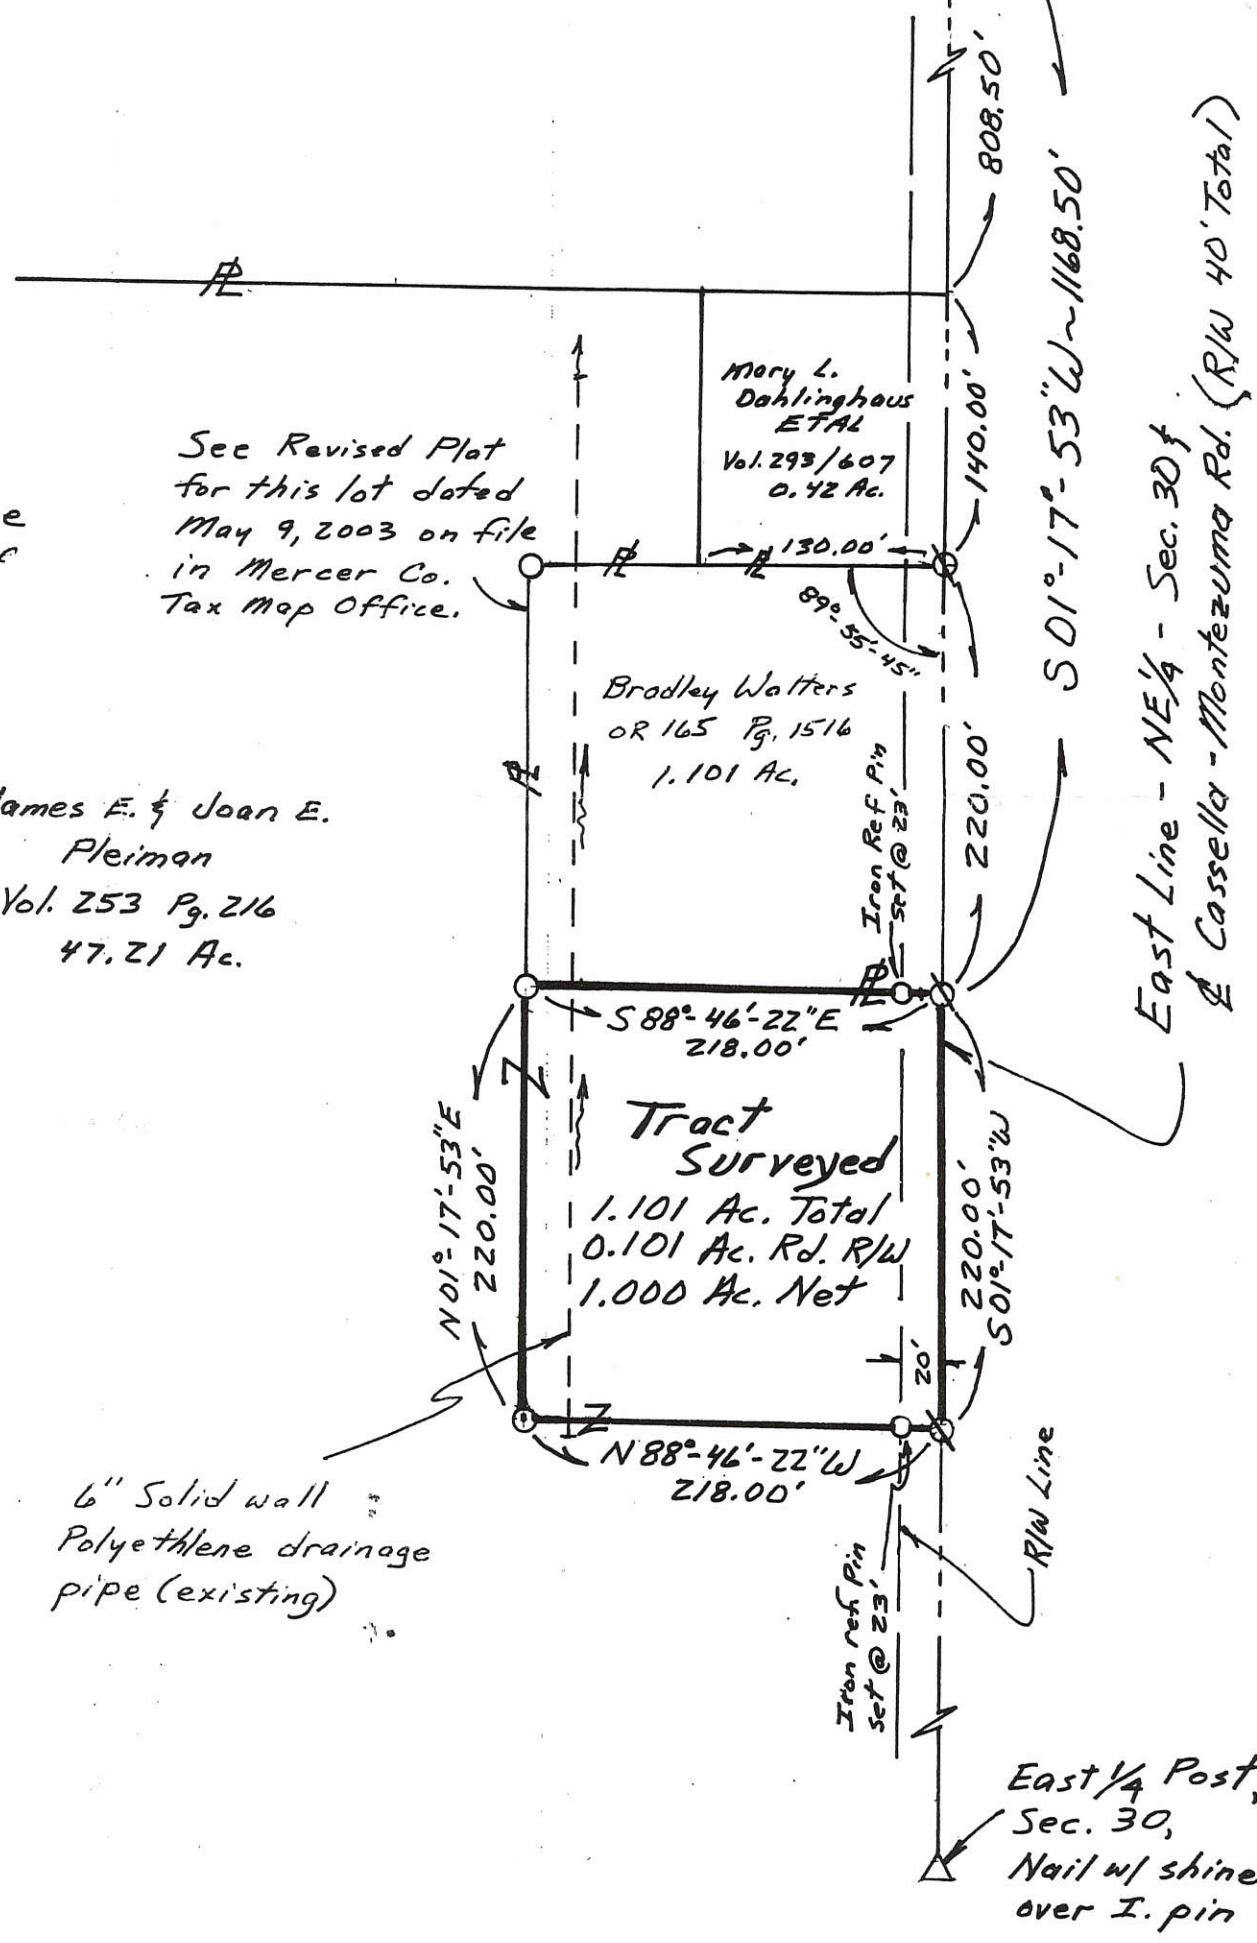 808.50'
S 01°-17'-53"W~1168.50'
East Line - NE 1/4 - Sec. 30 &
℄ Cassella - Montezuma Rd. (R/W 40' Total)
PL
Mary L.
Dahlinghaus
ETAL
Vol. 293/607
0.42 Ac.
140.00'
See Revised Plat
for this lot dated
May 9, 2003 on file
in Mercer Co.
Tax Map Office.
PL
PL
130.00'
89°-55'-45"
Bradley Walters
OR 165 Pg. 1516
1.101 Ac.
PL
Iron Ref Pin
set @ 23'
220.00'
James E. & Joan E.
Pleiman
Vol. 253 Pg. 216
47.21 Ac.
PL
S 88°-46'-22"E
218.00'
N 01°-17'-53"E
220.00'
Tract
Surveyed
1.101 Ac. Total
0.101 Ac. Rd. R/W
1.000 Ac. Net
220.00'
S 01°-17'-53"W
20'
N 88°-46'-22"W
218.00'
6" Solid wall
Polyethlene drainage
pipe (existing)
Iron ref Pin
set @ 23'
R/W Line
East 1/4 Post,
Sec. 30,
Nail w/ shine
over I. pin